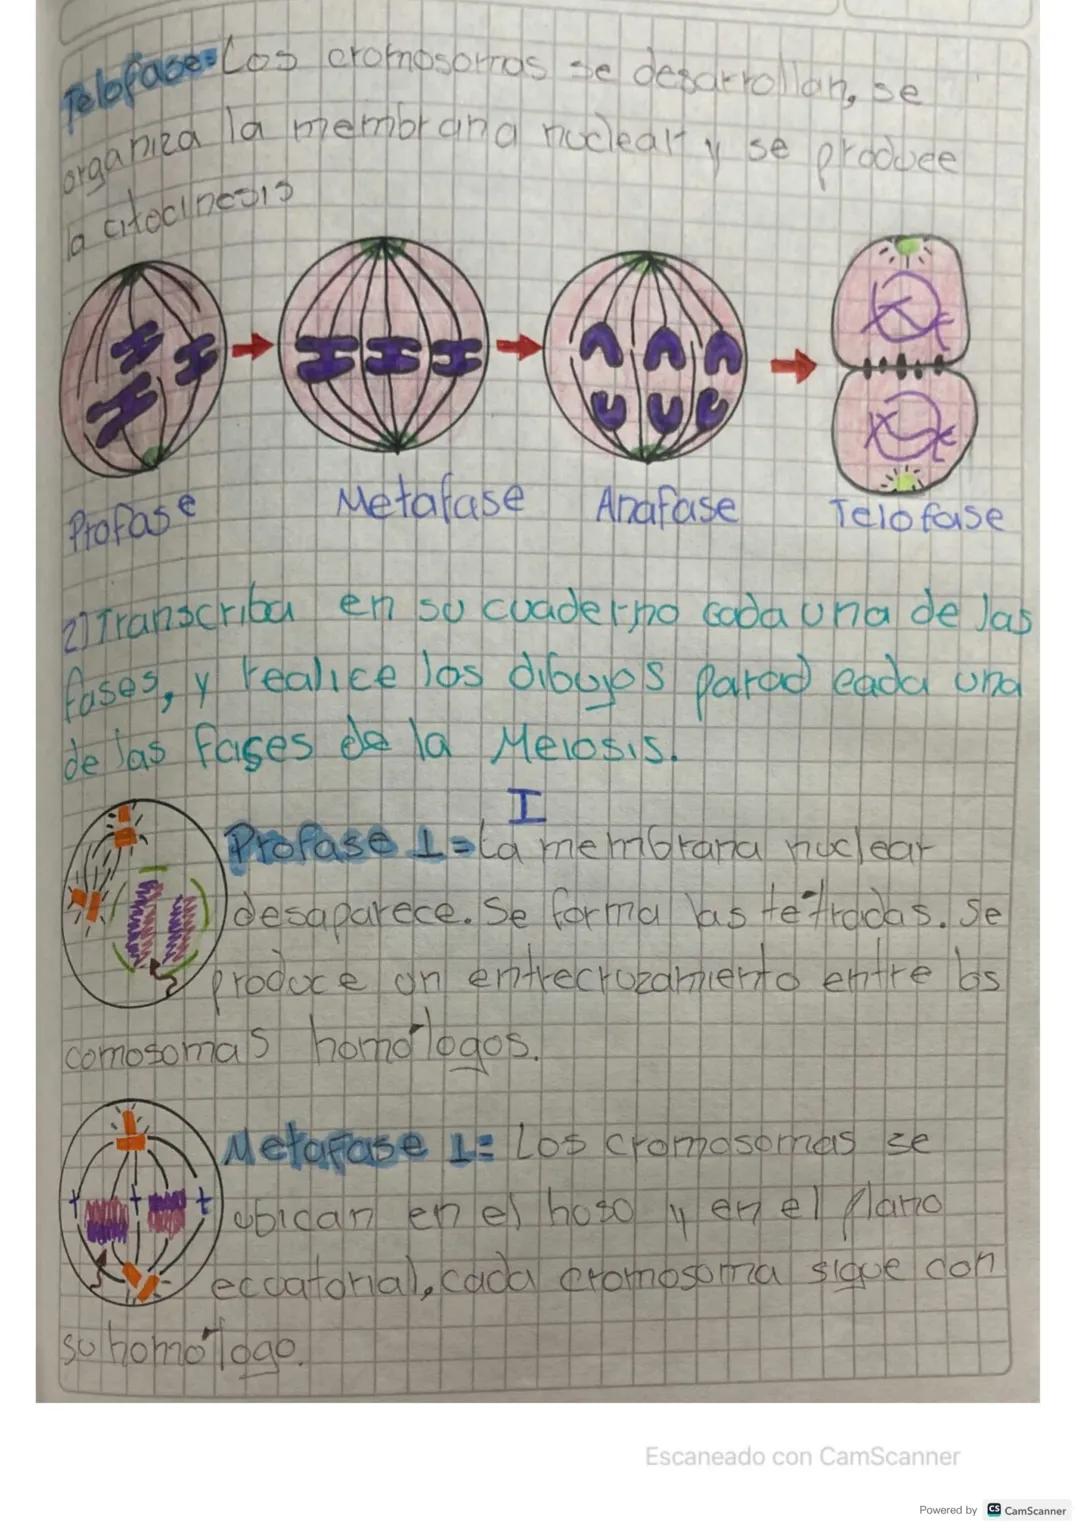 Telofase= Los cromosomas se desarrollan, se
organiza la membrana nuclear y se produce
la citocinesis
Profase Metafase Anafase Telofase
2) Transcriba en su cuaderno cada una de las
fases, y realice los dibujos parad cada una
de las fases de la Meiosis.
I
Profase 1= La membrana nuclear
desaparece. Se forma las tetradas. Se
produce un entrecruzamiento entre los
comosomas homólogos.
Metafase 1= Los cromosomas se
ubican en el huso y en el plano
ecuatorial, cada cromosoma sigue con
su homólogo.
Escaneado con CamScanner
Powered by CS CamScanner